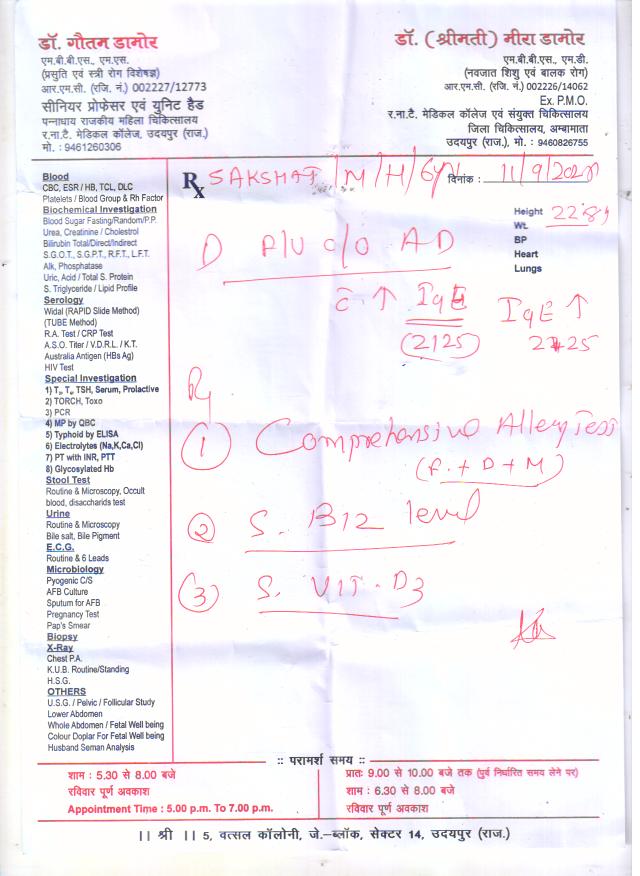 डॉ. गौतम डामोर
एम.बी.बी.एस., एम.एस.
(प्रसुति एवं स्त्री रोग विशेषज्ञ)
आर.एम.सी. (रजि. नं.) 002227/12773
सीनियर प्रोफेसर एवं युनिट हैड
पन्नाधाय राजकीय महिला चिकित्सालय
र.ना.टै. मेडिकल कॉलेज, उदयपुर (राज.)
मो. : 9461260306
डॉ. (श्रीमती) मीरा डामोर
एम.बी.बी.एस., एम.डी.
(नवजात शिशु एवं बालक रोग)
आर.एम.सी. (रजि. नं.) 002226/14062
Ex. P.M.O.
र.ना.टै. मेडिकल कॉलेज एवं संयुक्त चिकित्सालय
जिला चिकित्सालय, अम्बामाता
उदयपुर (राज.), मो. : 9460826755
Blood
CBC, ESR / HB, TCL, DLC
Platelets / Blood Group & Rh Factor
Biochemical Investigation
Blood Sugar Fasting/Random/P.P.
Urea, Creatinine / Cholestrol
Bilirubin Total/Direct/Indirect
S.G.O.T., S.G.P.T., R.F.T., L.F.T.
Alk, Phosphatase
Uric, Acid / Total S. Protein
S. Triglyceride / Lipid Profile
Serology
Widal (RAPID Slide Method)
(TUBE Method)
R.A. Test / CRP Test
A.S.O. Titer / V.D.R.L. / K.T.
Australia Antigen (HBs Ag)
HIV Test
Special Investigation
1) T₃, T₄, TSH, Serum, Prolactive
2) TORCH, Toxo
3) PCR
4) MP by QBC
5) Typhoid by ELISA
6) Electrolytes (Na,K,Ca,Cl)
7) PT with INR, PTT
8) Glycosylated Hb
Stool Test
Routine & Microscopy, Occult
blood, disaccharids test
Urine
Routine & Microscopy
Bile salt, Bile Pigment
E.C.G.
Routine & 6 Leads
Microbiology
Pyogenic C/S
AFB Culture
Sputum for AFB
Pregnancy Test
Pap's Smear
Biopsy
X-Ray
Chest P.A.
K.U.B. Routine/Standing
H.S.G.
OTHERS
U.S.G. / Pelvic / Follicular Study
Lower Abdomen
Whole Abdomen / Fetal Well being
Colour Doplar For Fetal Well being
Husband Seman Analysis
Rx /M/H/6yr दिनांक : 11/9/
Height
Wt.
BP
Heart
Lungs
D P/U c/o AD
c̄ ↑ IgE IgE ↑
(2125)
Rx
① Comprehensive Allergy Test
(F. + D + M)
② S. B12 level
③ S. VIT. D3
:: परामर्श समय ::
शाम : 5.30 से 8.00 बजे
रविवार पूर्ण अवकाश
Appointment Time : 5.00 p.m. To 7.00 p.m.
प्रातः 9.00 से 10.00 बजे तक (पुर्व निर्धारित समय लेने पर)
शाम : 6.30 से 8.00 बजे
रविवार पूर्ण अवकाश
|| श्री || 5, वत्सल कॉलोनी, जे.–ब्लॉक, सेक्टर 14, उदयपुर (राज.)